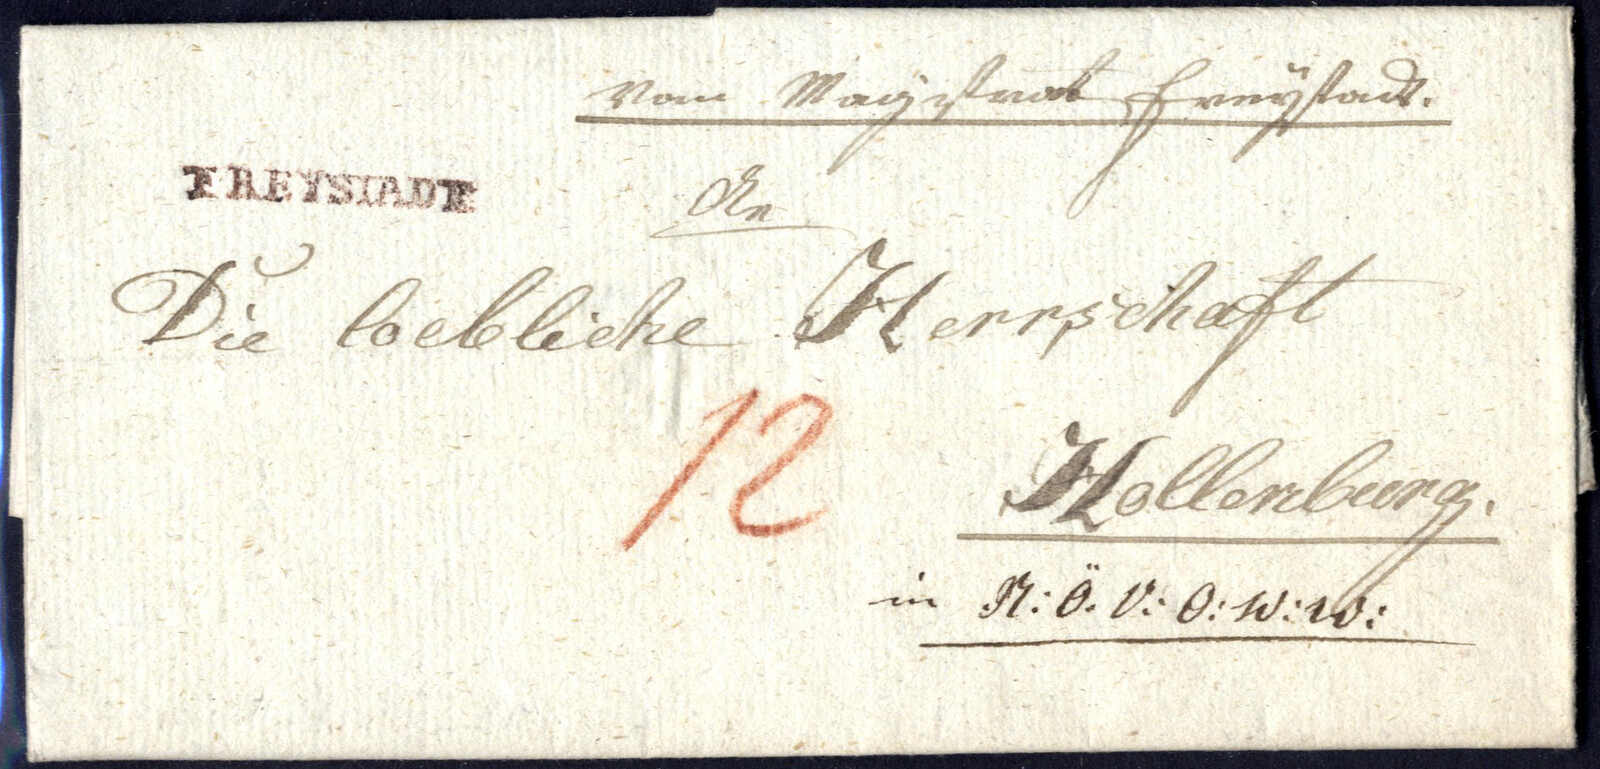 Vom Magistrat Freÿstadt.
FREYSTADT
An
Die loebliche Herrschaft
12
Hollenburg.
in N: Ö. V: O: W: W: